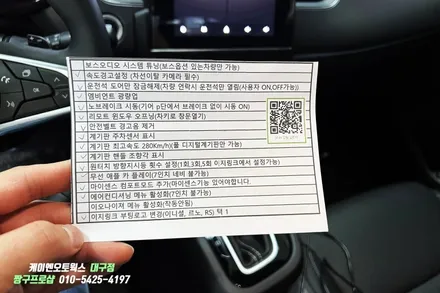 보스오디오 시스템 튜닝(보스옵션 있는차량만 가능)
속도경고설정 (차선이탈 카메라 필수)
운전석 도어만 잠금해제(차량 연락시 운전석만 열림(사용자 ON,OFF가능))
엠비언트 광량업
노브레이크 시동(기어 p단에서 브레이크 없이 시동 ON)
리모트 윈도우 오프닝(차키로 창문열기)
안전벨트 경고음 제거
계기판 주차센서 표시
계기판 최고속도 280Km/h)(풀 디지털계기판만 가능)
계기판 핸들 조향각 표시
원터치 방향지시등 횟수 설정(1회,3회,5회 이지링크에서 설정가능)
무선 애플 카 플레이(7인치 네비 불가능)
마이센스 컴포트모드 추가(마이센스기능 있어야합니다.
에어컨디셔닝 메뉴 활성화(7인치 불가능)
이오나이저 메뉴 활성화(작동안됨)
이지링크 부팅로고 변경(이니셜, 르노, RS) 택 1
케이엔오토웍스 대구점
짱구프로샵 010-5425-4197